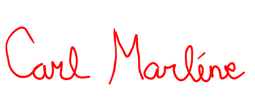 Carl Marléne